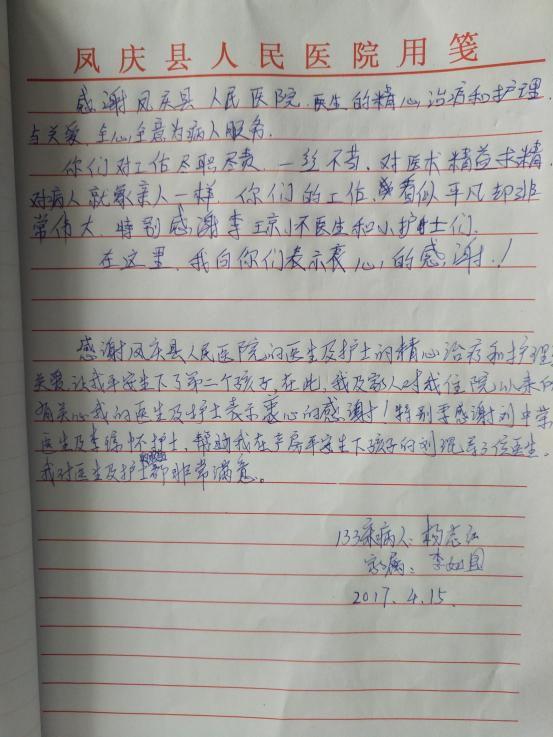 凤庆县人民医院用笺
感谢凤庆县人民医院医生的精心治疗和护理
与关爱,全心全意为病人服务。
你们对工作尽职尽责,一丝不苟,对医术精益求精,
对病人就象亲人一样,你们的工作,看似平凡却非
常伟大,特别感谢李琼怀医生和小护士们。
在这里,我向你们表示衷心的感谢!
感谢凤庆县人民医院的医生及护士的精心治疗和护理
关爱,让我平安生下了第二个孩子,在此,我及家人对我住院以来
有关心我的医生及护士表示衷心的感谢!特别要感谢刘中荣
医生及李琼怀护士,帮助我在产房平安生下孩子的刘 等3位医生。
我对医生及护士都非常满意。
133床病人:杨志
家属:李
2017.4.15.